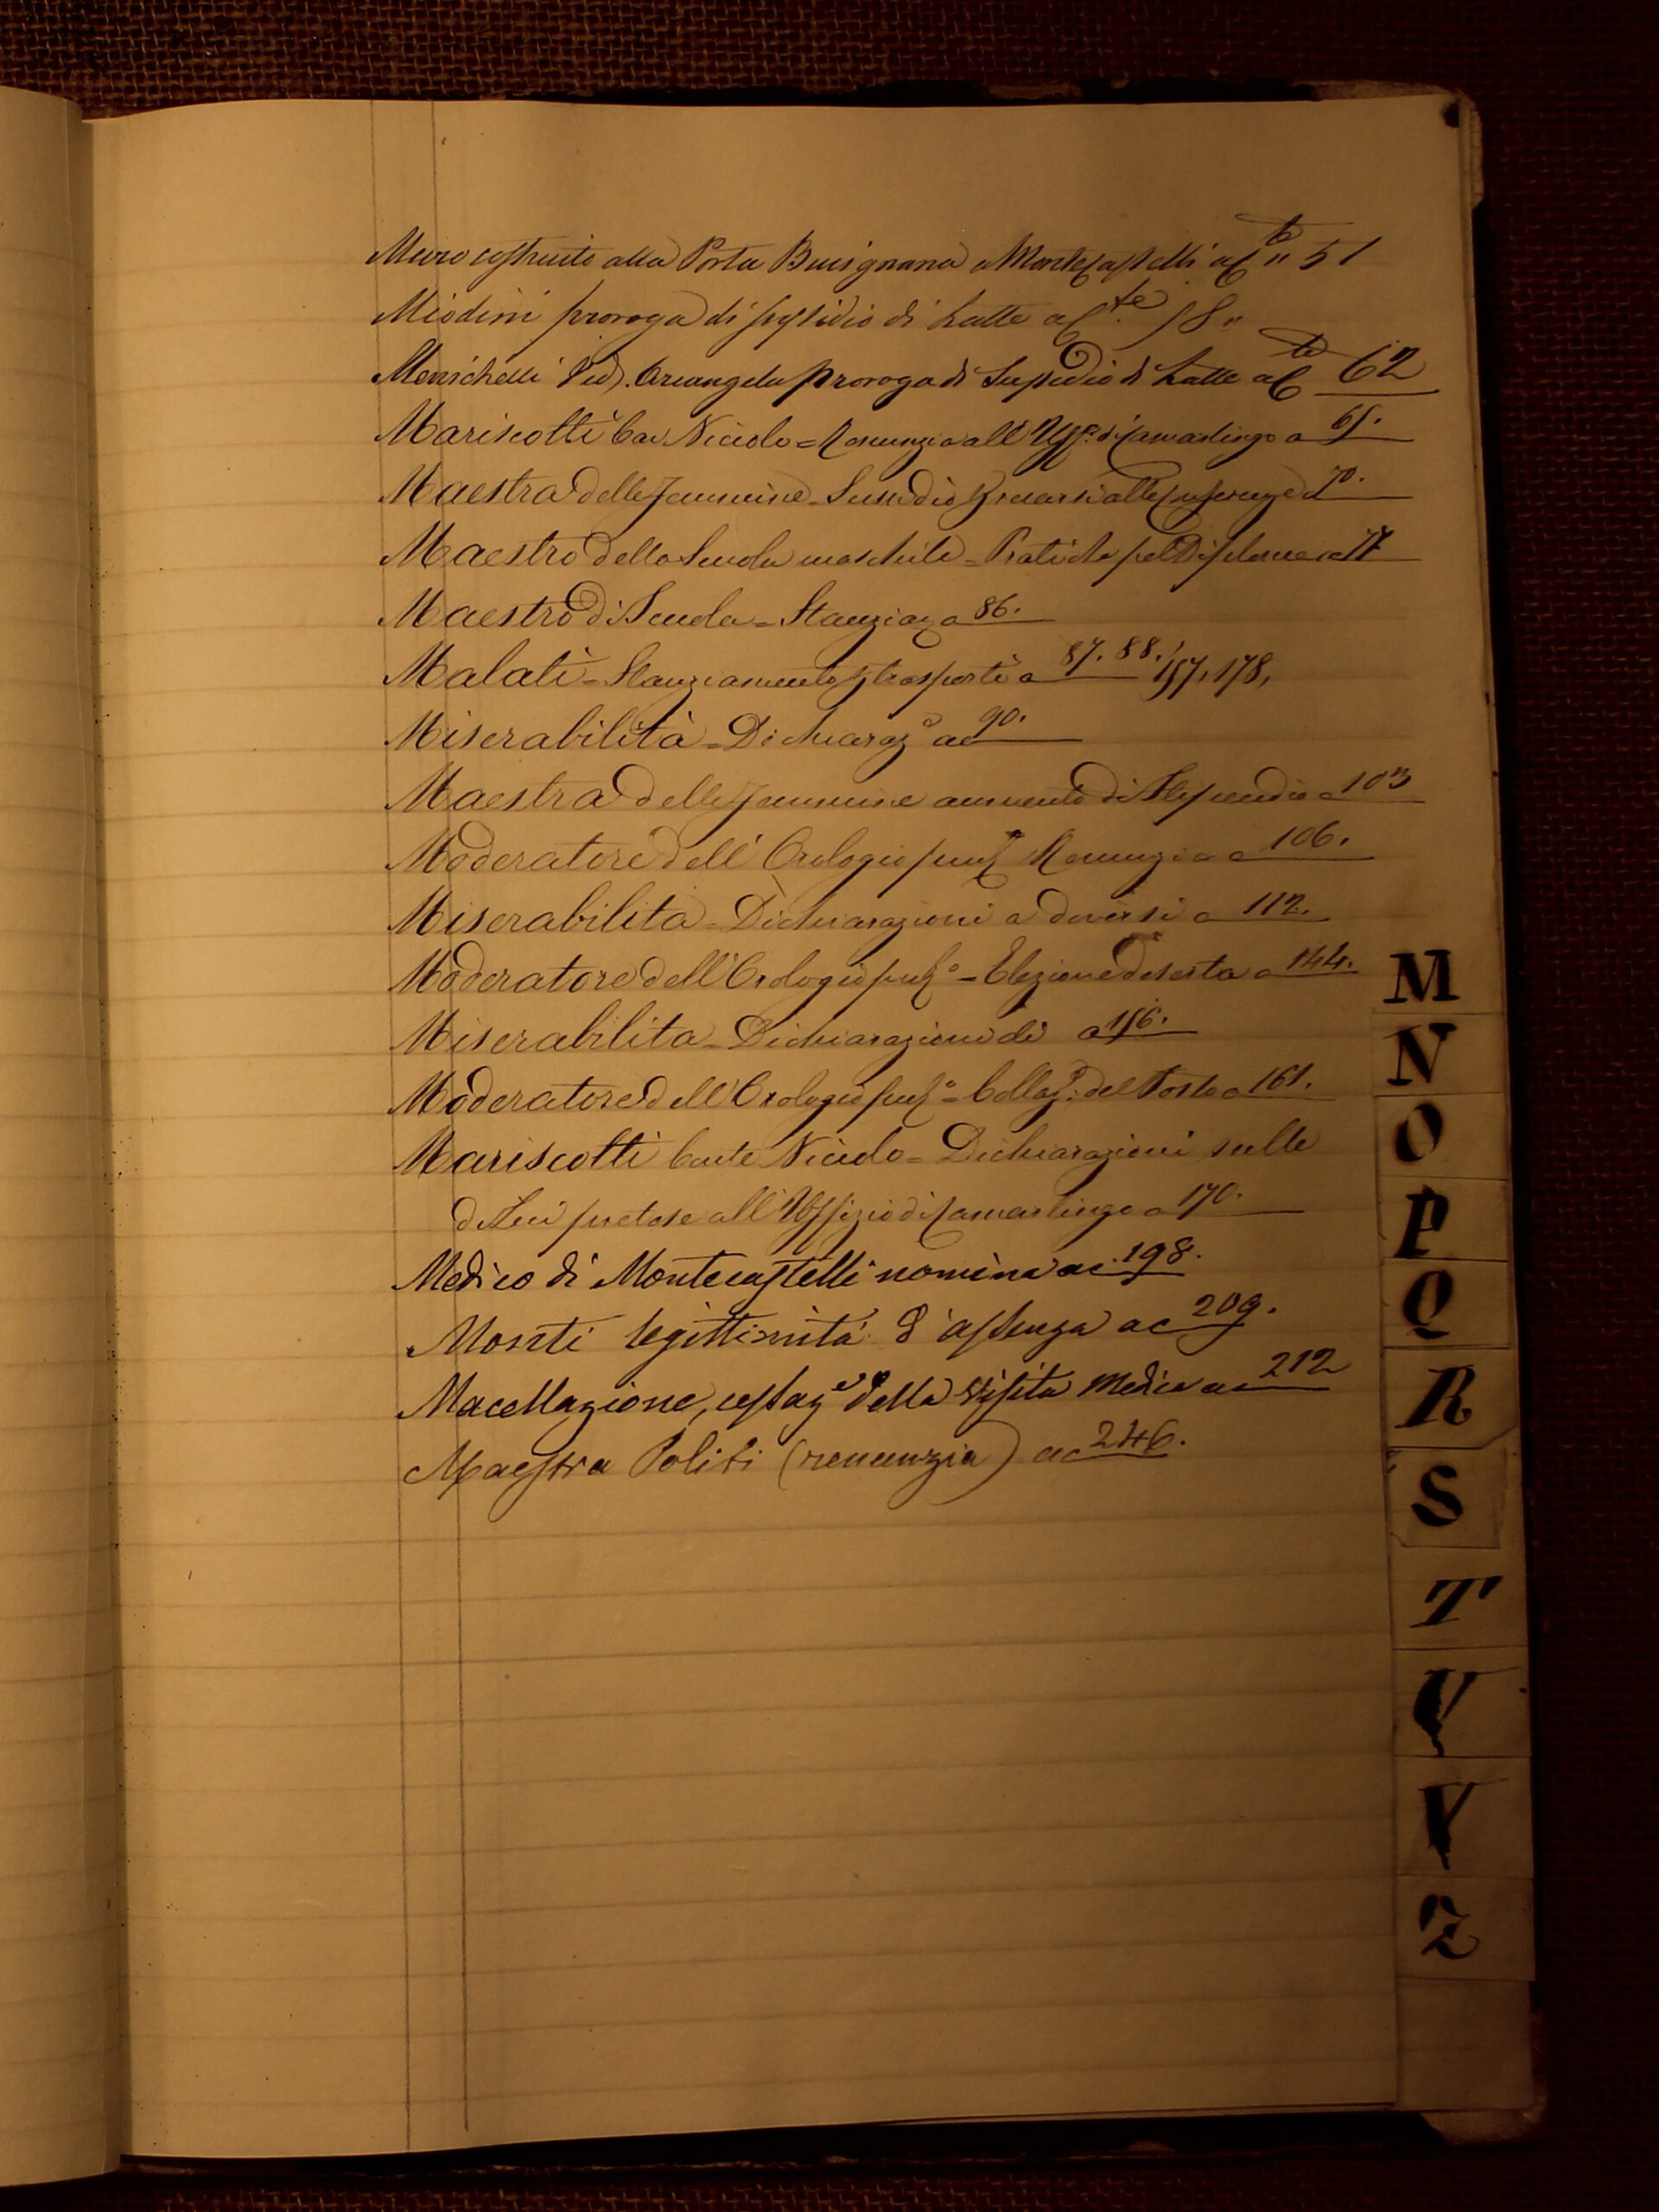 Muro costruito alla Porta Buisignana a Montecastelli a C.te 51
Miodini proroga di sussidio di Latte a C.te 58
Menichelli Ved. Arcangela proroga di Sussidio di Latte a C.te 62
Mariscotti Niccolo = Renunzia all'Uff.o di Camarlingo a 65.
Maestra delle femmine - Sussidio p recarsi alle conferenze a 70.
Maestro della Scuola maschile = Pratiche pel Diploma a 77
Maestro di Scuola = Stanziaz a 86.
Malati = Stanziamento p trasporti a 87. 88. 157, 178,
Miserabilità = Dichiaraz.e ac 90.
Maestra delle femmine aumento di Stipendio a 103
Moderatore dell'Orologio pub Renunzia a 106.
Miserabilita = Dichiarazioni a diversi a 112.
Moderatore dell'Orologio pub.o = Elezione deserta a 144.
Miserabilita = Dichiarazioni di a 156.
Moderatore dell'Orologio pub.o = Collaz.e del Posto a 161.
Mariscotti Conte Niccolo = Dichiarazioni sulle
di Lui pretese all'Uffizio di Camarlingo a 170.
Medico di Montecastelli nomina ac. 198.
Monti legittimità d'assenza ac 209.
Macellazione, cessaz.e della visita Medica ac 212
Maestra Politi (renunzia) ac 246.
M
N
O
P
Q
R
S
T
V
Z